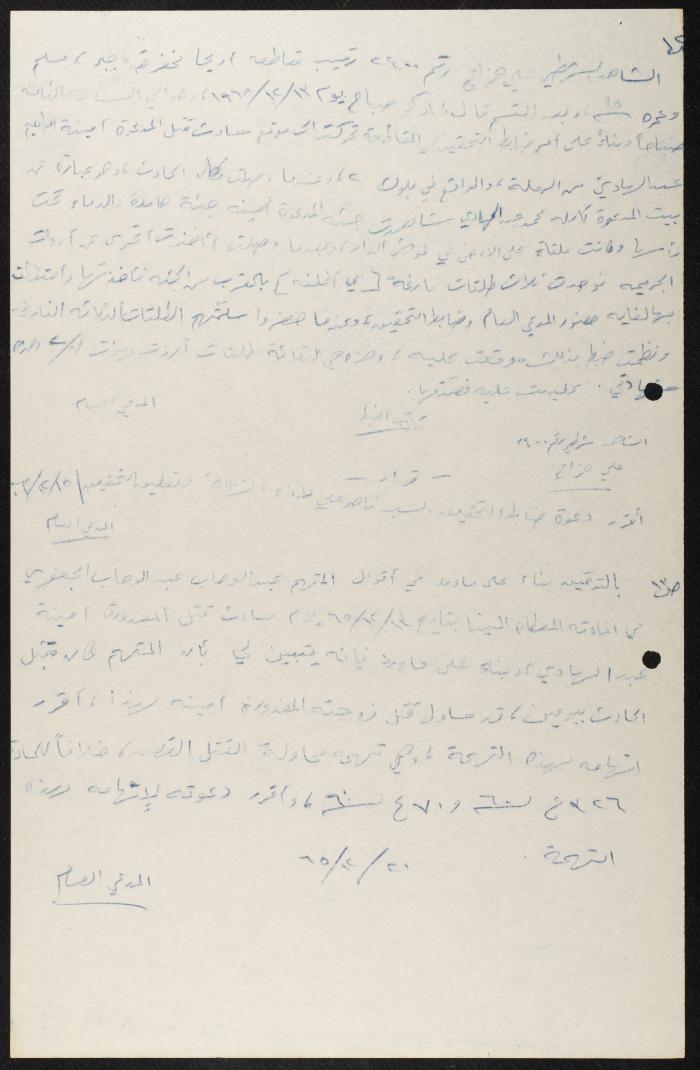 الشاهد الشرطي علي هزاع رقم ٢٩٠٠ رتيب مقاطعة اريحا مخفر عقبة جبر، مسلم
وعمره ٣٥ سنة، وبعد القسم قال: اذكر صباح يوم ١٩٦٥/٢/١٣، وحوالي الساعة الثامنة
صباحا وبناء على أمر ضابط التحقيق في المقاطعة تحركت الى موقع حادث قتل المدعوة امينة ابراهيم
عبد الهادي من الرملة، والواقع في بلوك ٢، وعندما وصلت مكان الحادث، وهو عبارة عن
بيت المدعوة كامله محمد عبد الهادي شاهدت جثة المدعوة أمينه جثة هامدة والدماء تحت
رأسها وكانت ملقاة على الارض في حوش الدار، وبعدما وصلت، أخذت أتحرى عن أدوات
الجريمه فوجدت ثلاث طلقات فارغة [أي أغلفه] بالقرب من الجثه فأخذتها واحتفظت
بها لغاية حضور المدعي العام وضابط التحقيق، وعندما حضروا سلمتهم الطلقات الثلاثة الفارغة
ونظمت ضبط بذلك ووقعت عليه، وهذه هي الثلاثة طلقات أبرزت وميزت
شهادتي. تليت عليه فصدقها.
المدعي العام
كاتب الضبط
الشاهد شرطي رقم ٢٩٠٠
علي هزاع
- قرار -
أقرر دعوة ضابط التحقيق السيد ناصر علي لاداء الشهادة وتعليق التحقيق
المدعي العام
بالتدقيق بناء على ماورد في أقوال المتهم عبد الوهاب عبد الوهاب الجعفري
في افادته المعطاه الينا بتاريخ ٦٥/٢/١٣ يوم حادث قتل المغدورة امينة
عبد الهادي، وبناء على ماورد فإنه يتبين لي بأن المتهم كان قبل
الحادث بيومين، قد حاول قتل زوجته المغدورة امينه لهذا، أقرر
اتهامه بهذه التهمة، وهي تهمة محاولة القتل القصد، خلافاً للمادة
٣٢٦ ع لسنة ٦٠ و ٧٠ ع لسنة ٦٠، وأقرر دعوته لإتهامه بهذه
التهمة. ٦٥/٢/٢٠
المدعي العام